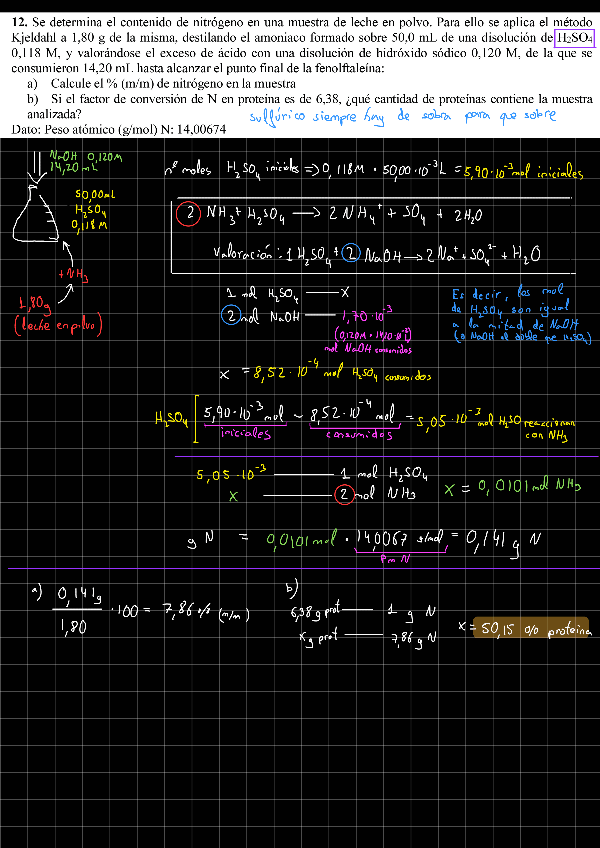 12. Se determina el contenido de nitrógeno en una muestra de leche en polvo. Para ello se aplica el método
Kjeldahl a 1,80 g de la misma, destilando el amoniaco formado sobre 50,0 mL de una disolución de H₂SO₄
0,118 M, y valorándose el exceso de ácido con una disolución de hidróxido sódico 0,120 M, de la que se
consumieron 14,20 mL hasta alcanzar el punto final de la fenolftaleína:
a) Calcule el % (m/m) de nitrógeno en la muestra
b) Si el factor de conversión de N en proteína es de 6,38, ¿qué cantidad de proteínas contiene la muestra
analizada?
sulfúrico siempre hay de sobra para que sobre
Dato: Peso atómico (g/mol) N: 14,00674
NaOH 0,120M
14,20 mL
50,00mL
H₂SO₄
0,118 M
+NH₃
1,80g
(leche en polvo)
nº moles H₂SO₄ iniciales => 0,118M · 50,00·10⁻³L = 5,90·10⁻³mol iniciales
2 NH₃ + H₂SO₄ → 2 NH₄⁺ + SO₄ + 2H₂O
Valoración: 1 H₂SO₄ + 2 NaOH → 2Na⁺ + SO₄²⁻ + H₂O
1 mol H₂SO₄ — x
2 mol NaOH — 1,70·10⁻³
(0,120M · 14,20·10⁻³)
mol NaOH consumidos
Es decir, los mol
de H₂SO₄ son igual
a la mitad de NaOH
(o NaOH el doble que H₂SO₄)
x = 8,52·10⁻⁴ mol H₂SO₄ consumidos
H₂SO₄ [ 5,90·10⁻³mol − 8,52·10⁻⁴ mol = 5,05·10⁻³ mol H₂SO reaccionan
con NH₃
iniciales consumidos
5,05·10⁻³ — 1 mol H₂SO₄
x — 2 mol NH₃ x = 0,0101 mol NH₃
g N = 0,0101 mol · 14,0067 g/mol = 0,141 g N
Pm N
a) 0,141g / 1,80 · 100 = 7,86% (m/m)
b)
6,38g prot — 1 g N
x g prot — 7,86 g N
x = 50,15 % proteína